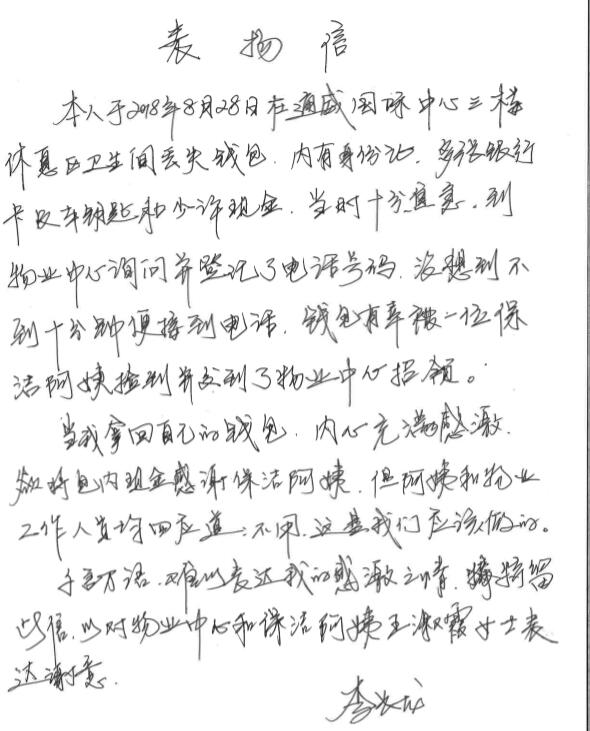 表扬信
本人于2018年8月28日在通威国际中心三楼
休息区卫生间丢失钱包,内有身份证,多张银行
卡及车钥匙和少许现金,当时十分焦急,到
物业中心询问并登记了电话号码,没想到不
到十分钟便接到电话,钱包有幸被一位保
洁阿姨捡到并交到了物业中心招领。
当我拿回自己的钱包,内心充满感激,
欲将包内现金感谢保洁阿姨,但阿姨和物业
工作人员均回应道:不用,这是我们应该做的。
千言万语,难以表达我的感激之情,特留
此信,以对物业中心和保洁阿姨王淑霞女士表
达谢意.
李